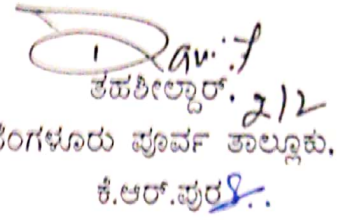 ತಹಶೀಲ್ದಾರ್. 2/2
ಬೆಂಗಳೂರು ಪೂರ್ವ ತಾಲ್ಲೂಕು.
ಕೆ.ಆರ್.ಪುರ